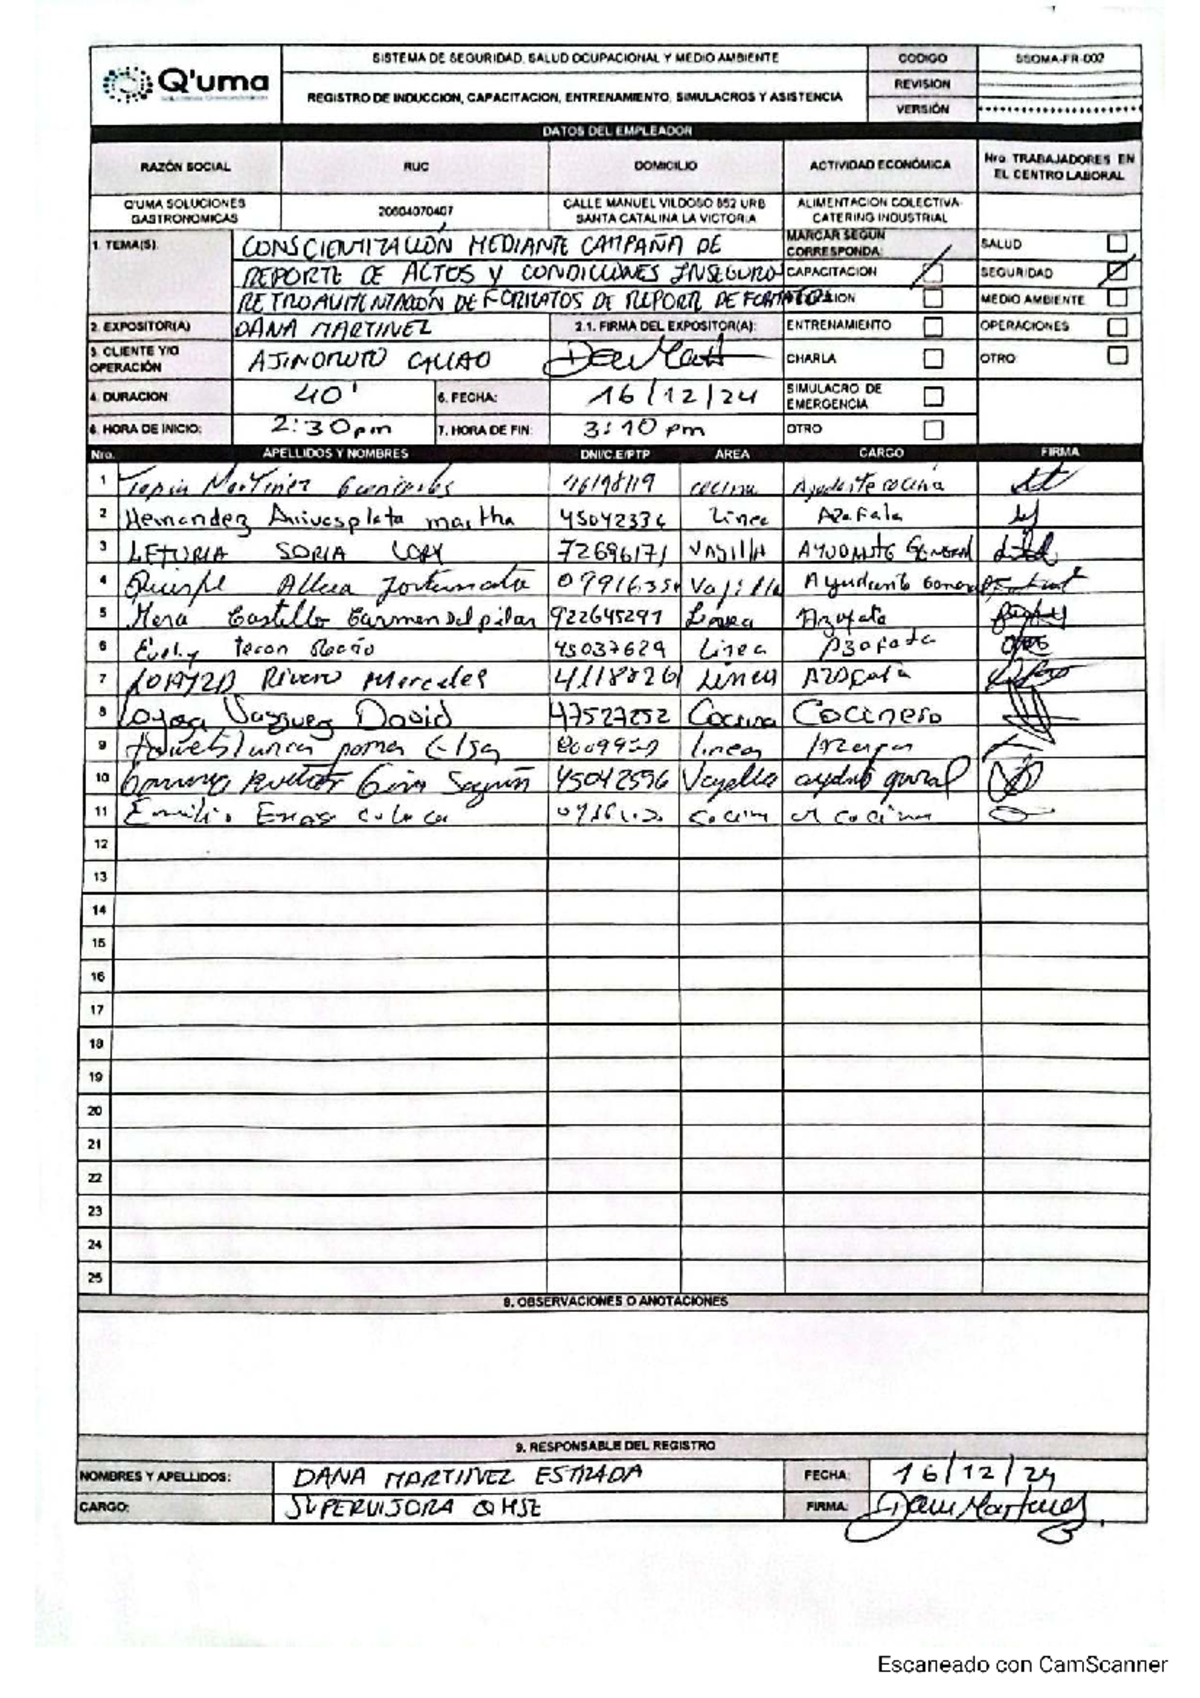 Q'uma
SISTEMA DE SEGURIDAD, SALUD OCUPACIONAL Y MEDIO AMBIENTE
REGISTRO DE INDUCCION, CAPACITACION, ENTRENAMIENTO, SIMULACROS Y ASISTENCIA
CODIGO SSOMA-FR-002
REVISION
VERSIÓN
DATOS DEL EMPLEADOR
RAZÓN SOCIAL RUC DOMICILIO ACTIVIDAD ECONÓMICA Nro. TRABAJADORES EN EL CENTRO LABORAL
Q'UMA SOLUCIONES GASTRONOMICAS 20604070407 CALLE MANUEL VILDOSO 852 URB SANTA CATALINA LA VICTORIA ALIMENTACION COLECTIVA- CATERING INDUSTRIAL
1. TEMA(S) CONSCIENTIZACIÓN MEDIANTE CAMPAÑA DE
REPORTE DE ACTOS Y CONDICIONES INSEGURO
DE FORMATOS DE REPORT DE
MARCAR SEGÚN CORRESPONDA:
CAPACITACION
SALUD
SEGURIDAD
MEDIO AMBIENTE
2. EXPOSITOR(A) DANA MARTINEZ 2.1. FIRMA DEL EXPOSITOR(A): ENTRENAMIENTO OPERACIONES
3. CLIENTE Y/O OPERACIÓN AJINOMOTO CALLAO CHARLA OTRO
4. DURACION: 40' 6. FECHA: 16/12/24 SIMULACRO DE EMERGENCIA
6. HORA DE INICIO: 2:30pm 7. HORA DE FIN: 3:10 pm OTRO
Nro. APELLIDOS Y NOMBRES DNI/C.E/PTP AREA CARGO FIRMA
1 Martinez cocina Ayudante cocina
2 Hernandez martha 45042334 Linea Azafata
3 LETURIA SORIA 72696171 VAJILLA AYUDANTE GENERAL
4 Quispe Allca Fortunata Vajilla Ayudante General
5 Mera Castillo Carmen Del pilar 922645297 Linea Azafata
6 45037629 Linea Azafata
7 Rivero Mercedes 41118826 Linea Azafata
8 Loyoga Vasquez David 47527252 Cocina Cocinero
9 poma Elsa linea
10 45042596 Vajilla
11 Emilio
12
13
14
15
16
17
18
19
20
21
22
23
24
25
8. OBSERVACIONES O ANOTACIONES
9. RESPONSABLE DEL REGISTRO
NOMBRES Y APELLIDOS: DANA MARTINEZ ESTRADA FECHA: 16/12/24
CARGO: SUPERVISORA QHSE FIRMA: Dana Martinez
Escaneado con CamScanner